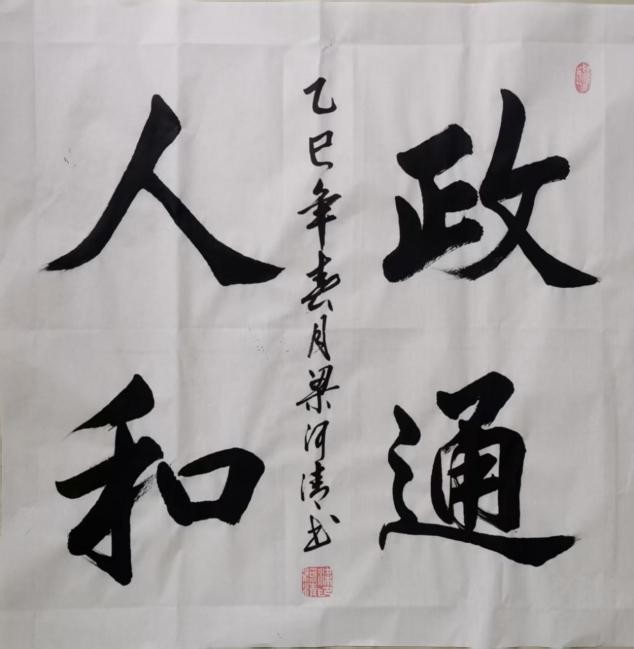 政通
人和
乙巳年春月梁河清书